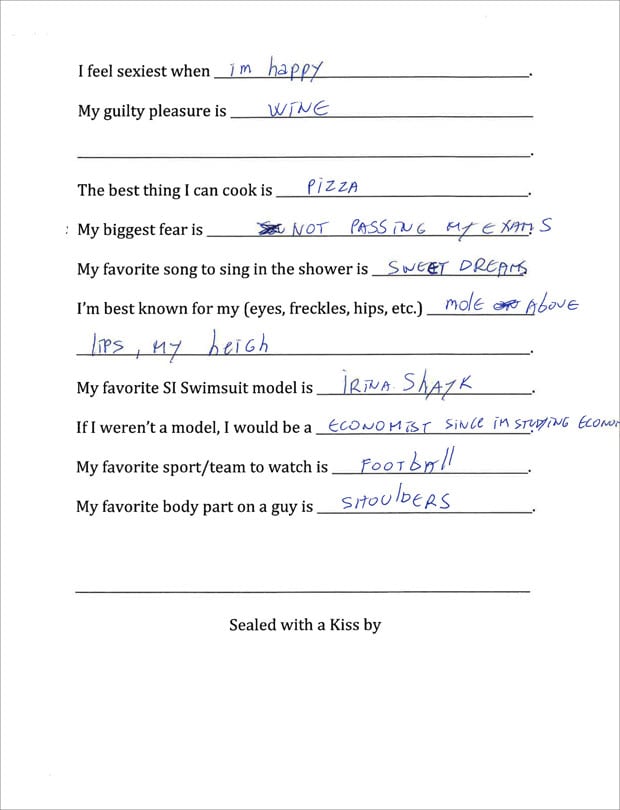 I feel sexiest when im happy.
My guilty pleasure is WINE
The best thing I can cook is PIZZA.
: My biggest fear is NOT PASSING MY EXAMS.
My favorite song to sing in the shower is SWEET DREAMS.
I'm best known for my (eyes, freckles, hips, etc.) mole Above
lips, MY heigh.
My favorite SI Swimsuit model is IRINA SHAYK.
If I weren't a model, I would be a ECONOMIST SINCE IM STUDYING ECONO
My favorite sport/team to watch is FOOTBALL.
My favorite body part on a guy is SHOULDERS.
Sealed with a Kiss by